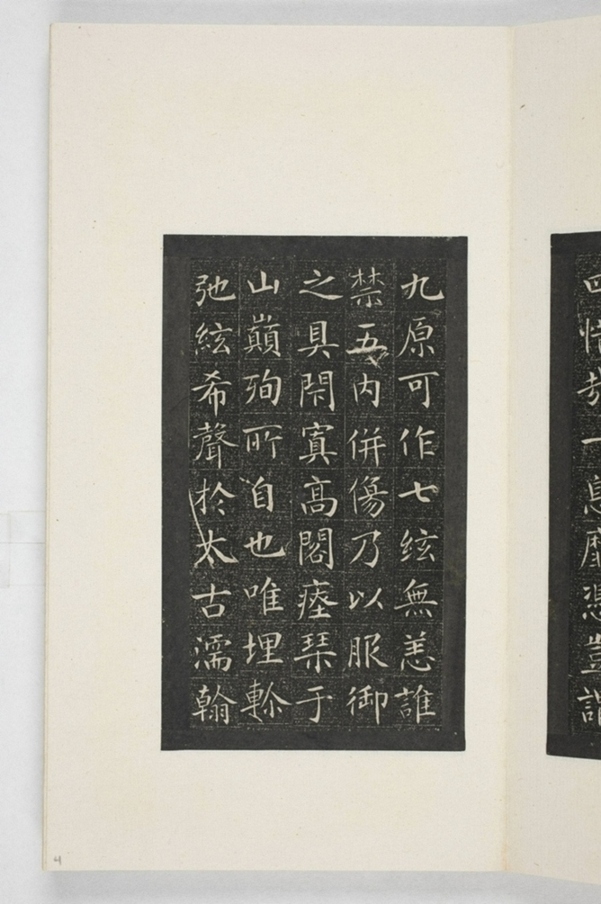 哉一息靡憑豈
九原可作七絃無恙誰
禁五内併傷乃以服御
之具閇寘高閣瘞琴于
山巓殉所自也唯埋軫
弛絃希聲於太古濡翰
4